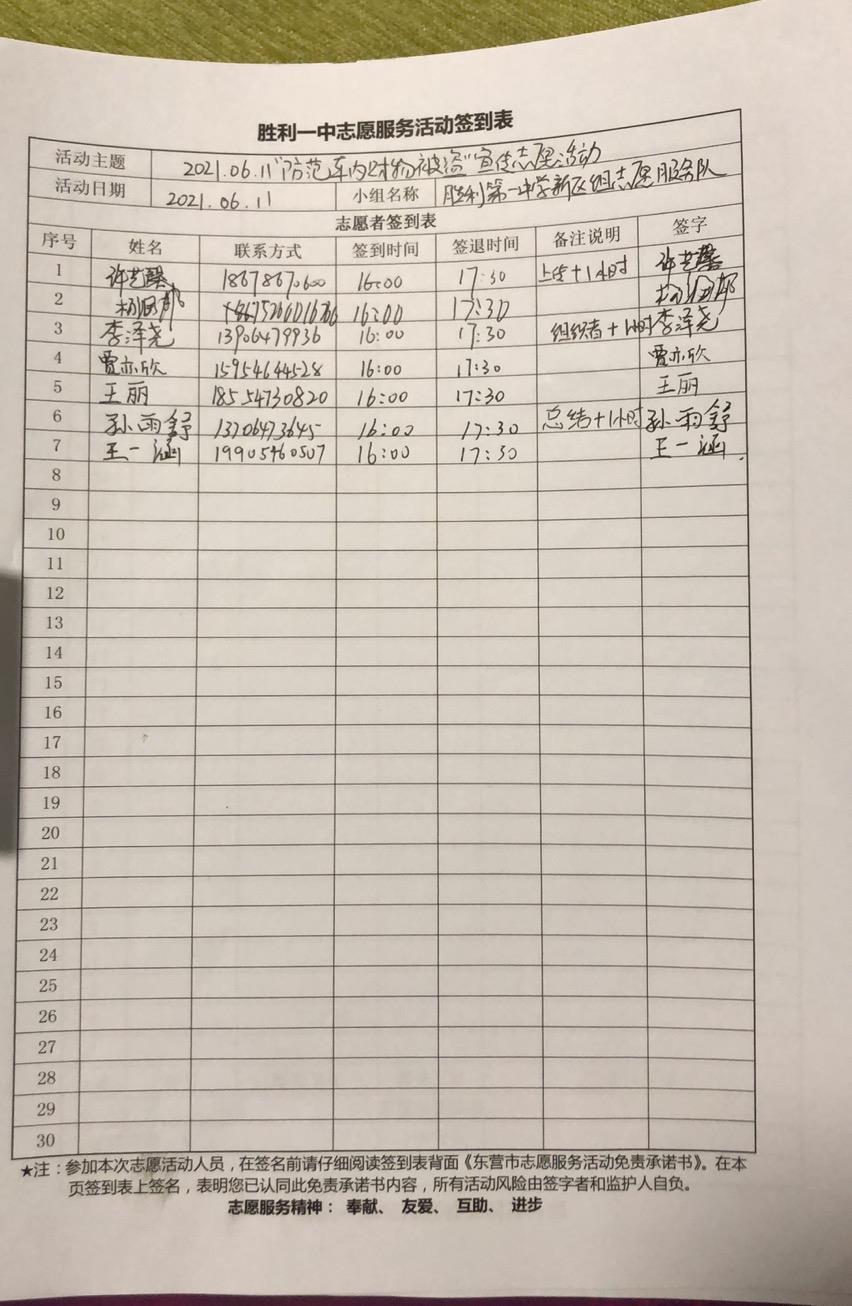 胜利一中志愿服务活动签到表
活动主题 2021.06.11"防范车内财物被盗"宣传志愿活动
活动日期 2021.06.11 小组名称 胜利第一中学新区组志愿服务队
志愿者签到表
序号 姓名 联系方式 签到时间 签退时间 备注说明 签字
1 许艺馨 18678670600 16:00 17:30 上传+1小时 许艺馨
2 16:00 17:30
3 李泽尧 13906479936 16:00 17:30 组织者+1小时 李泽尧
4 贾亦欣 15954644528 16:00 17:30 贾亦欣
5 王丽 18554730820 16:00 17:30 王丽
6 孙雨舒 13706473645 16:00 17:30 总结+1小时 孙雨舒
7 王一涵 19905460507 16:00 17:30 王一涵
8
9
10
11
12
13
14
15
16
17
18
19
20
21
22
23
24
25
26
27
28
29
30
★注：参加本次志愿活动人员，在签名前请仔细阅读签到表背面《东营市志愿服务活动免责承诺书》。在本
页签到表上签名，表明您已认同此免责承诺书内容，所有活动风险由签字者和监护人自负。
志愿服务精神： 奉献、 友爱、 互助、 进步